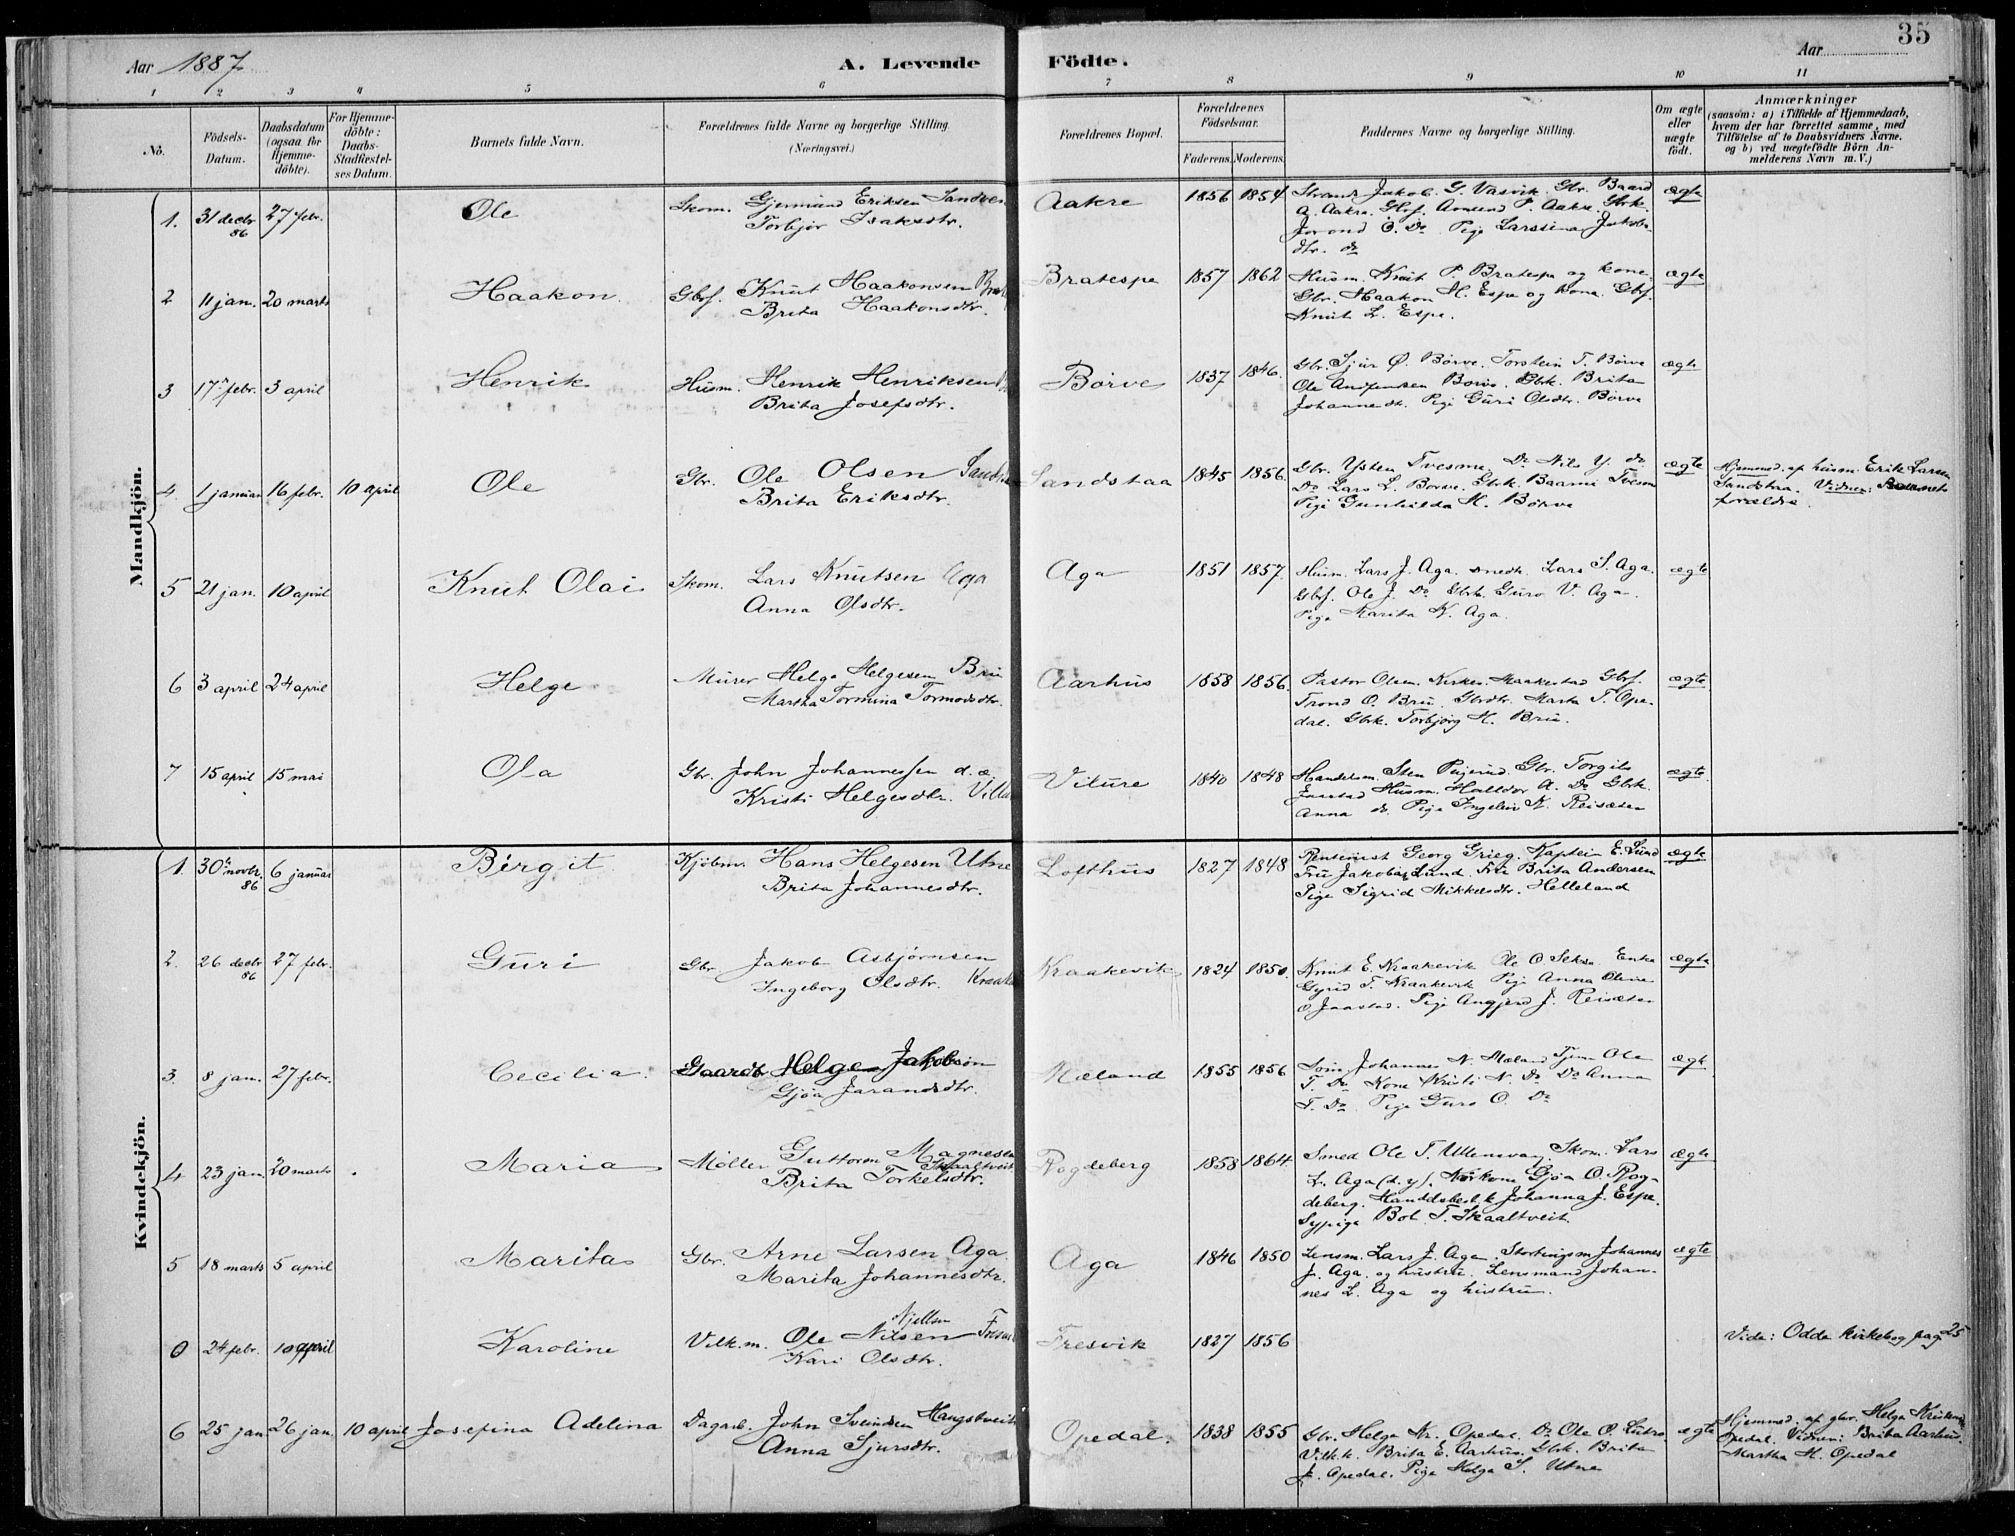 35
Aar 1887
A. Levende Födte.
Aar
1 2 3 4 5 6 7 8 9 10 11
No.
Födsels-Datum.
Daabsdatum (ogsaa for Hjemme-döbte).
For Hjemme-döbte: Daabs-Stadfæstel-ses Datum.
Barnets fulde Navn.
Forældrenes fulde Navne og borgerlige Stilling. (Næringsvei.)
Forældrenes Bopæl.
Forældrenes Födselsaar.
Faderens. Moderens.
Faddernes Navne og borgerlige Stilling.
Om ægte eller uægte födt.
Anmærkninger
(saasom: a) i Tilfælde af Hjemmedaab,
hvem der har forrettet samme, med
Tilföielse af to Daabsvidners Navne.
og b) ved uægtefödte Börn An-
melderens Navn m. V.)
Mandkjön.
1. 31 decbr 86 27 febr. Ole Skom. Gjermund Eriksen Aakre 1856 1854 Jakob G. Vasvik. Gbr. Baard ægte
Torbjør Isaksdtr. A. Aakre. P. Aakre. Gbrk.
O. Do Pige Larssina Jakobs-
dtr. do
2 11 jan. 20 marts Haakon Gbrf. Knut Haakonsen Bratespe 1857 1862 Husm. Knut P. Bratespe og kone. ægte
Brita Haakonsdtr. Gbr. Haakon H. Espe og kone. Gbrf.
Knut L. Espe.
3 17 febr. 3 april Henrik Husm. Henrik Henriksen Börve 1837 1846. Gbr. Sjur Ø. Börve. Torstein T. Börve ægte
Brita Josefsdtr. Ole Börve. Gbrk. Brita
Johannesdtr. Pige Guri Olsdtr. Börve
4 1 januar 16 febr. 10 april Ole Gbr. Ole Olsen Sandstaa 1845 1856. Gbr. Ysten Tvesme Do Nils Y. do ægte Hjemmed. af husm. Erik Larsen
Brita Eriksdtr. Do Lars L. Børve. Gbrk. Sandstaa. Vidner: Barnets
Pige Gunhilda H. Börve forældre.
5 21 jan. 10 april Knut Olai Skom. Lars Knutsen Aga Aga 1851 1857. Husm. Lars J. Aga. Lars S. Aga. ægte
Anna Olsdtr. Gbrf. Ole J. Do Gbrk. Guro V. Aga.
Pige Marita K. Aga.
6 3 april 24 april Helge Murer Helge Helgesen Bru Aarhus 1858 1856. Pastor Olsen. Haakestad Gbrf. ægte
Martha Tormina Tormodsdtr. Trond O. Bru. Gbrdtr. Marta T. Ope-
dal. Gbrk. Torbjörg H. Bru.
7 15 april 15 mai Ola Gbr. John Johannessen d. æ. Vilure 1840 1848 Handelsm. Sten Gbr. Torgils ægte
Kristi Helgesdtr. Jaastad Husm. Halldor A. Do Gbrk.
Anna do. Pige Ingeleiv K. Reisæter
Kvindekjön.
1. 30 novbr. 86 6 januar Birgit Kjöbm. Hans Helgesen Utne Lofthus 1827 1848 Rentenist Georg Grieg. Kaptein E. Lund ægte
Brita Johannesdtr. Fru Jakoba Lund. Brita Andersen
Pige Sigrid Mikkelsdtr. Helleland
2. 26 decbr 86 27 febr. Guri Gbr. Jakob Asbjörnsen Kraakevik 1824 1850. Knut E. Kraakevik Ole O. Sekse. Enke ægte
Ingeborg Olsdtr. Gyrid T. Kraakevik Pige Anna Oline
O. Jaastad. Pige Angjerd J. Reisæter
3. 8 jan. 27 febr. Cecilia. Gaardb. Helge Jakobsøn Mæland 1855 1856 Johannes N. Mæland Ole ægte
Gjøa Jarandsdtr. T. Do Kone Kristi N. Do Do Anna
T. Do Pige Guro O. Do
4 23 jan. 20 marts Maria Møller Guttorm Magnesen Skaaltveit Rogdeberg 1858 1864. Smed Ole T. Ullensvang. Skom. Lars ægte
Brita Torkelsdtr. L. Aga (d. y.). Gjöa O. Rog-
deberg. Johanna J. Espe.
Sypige Bol T. Skaaltveit.
5 18 marts 5 april Marita Gbr. Arne Larsen Aga. Aga 1846 1850 Lensm. Lars J. Aga. Stortingsm. Johannes ægte
Marita Johannesdtr. J. Aga og hustru. Lensmand Johan-
nes L. Aga og hustru.
0 24 febr. 10 april Karoline Vilk.m. Ole Nilsen Njellsen Tresvik 1827 1856 Vide: Odda kirkebog pag 25
Kari Olsdtr.
6 25 jan 26 jan. 10 april Josefina Adelina Dagarb. John Svendsen Haugstveit Opedal. 1838 1855 Gbr. Helge Kr. Opedal. Do Ole O. ægte Hjemmed. af gbr. Helge
Anna Sjursdtr. Vilk.k. Brita E. Aarhus. Gbrk. Brita Opedal. Vidner: Brita Aarhus.
J. Opedal. Pige Helga S. Utne Martha H. Opedal